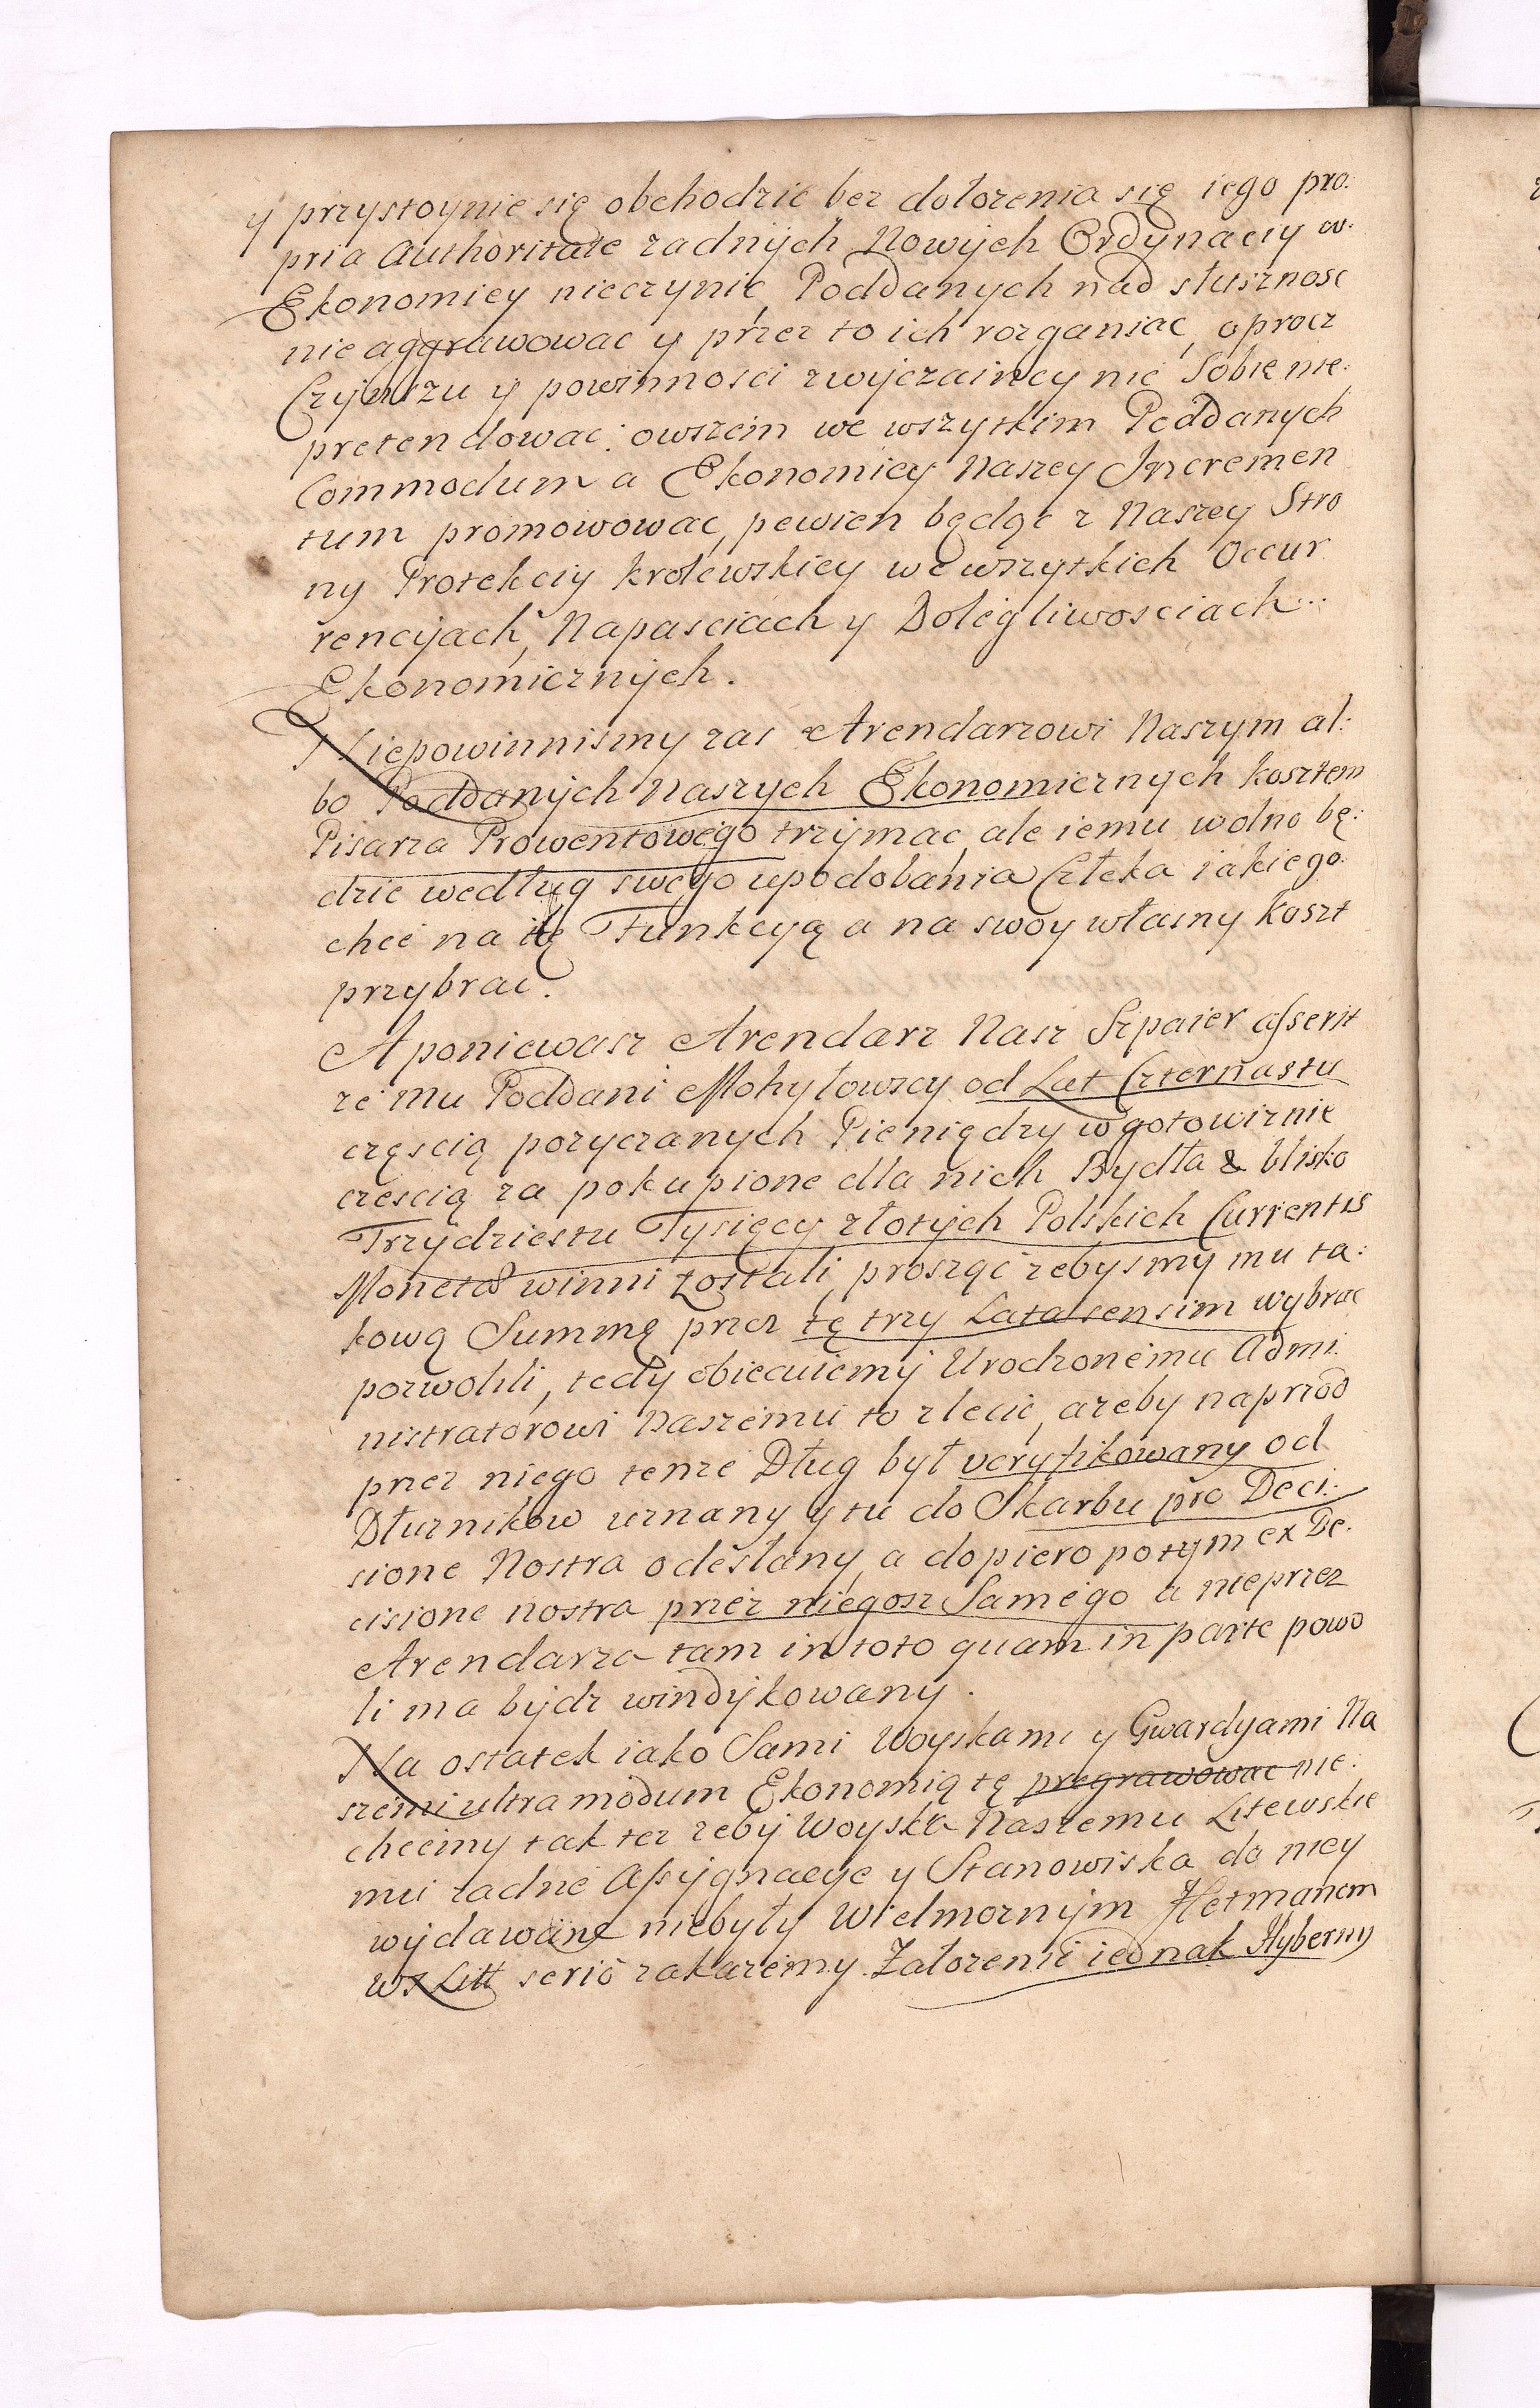 y przystoynie się obchodzić bez dołozenia się iego pro:
pria Authoritate zadnijch Nowijch Ordynacÿ w
Ekonomiey nieczynić, Poddanych nad słusznosc
nie aggrawowac y przez to ich rozganiać, oprocz
Czijnszu y powinnosci zwijczainey nic Sobie nie:
pretendowac: owszem we wszytkim Poddanych
Commodum a Ekonomiey Naszey Incremen
tum promowowac, pewien będąc z Naszey Stro
ny Protekciy Krolewskiey we wszytkich Occur
rencijach, Napasciach y Dolegliwosciach
Ekonomicznijch.
Niepowinnismy zas Arendarzowi Naszym al:
bo Poddanijch Naszych Ekonomicznych kosztem
Pisarza Prowentowego trzijmac, ale iemu wolno bę:
dzie według swego upodobania Człeka iakiego
chce na tę Funkcyą a na swoy własny koszt
przybrac.
A poniewasz Arendarz Nasz Szpaier asserit
ze mu Poddani Mohyłowscy od Lat Czternastu
częscią pozyczanych Pieniędzy w gotowiznie
czescią za pokupione dla nich Bydła & blisko
Trzydziestu Tysięcy złotijch Polskich Currentis
Moneta winni zostali, prosząc zebysmy mu ta:
kową Summę przez tę trzy Lata sensim wybrac
pozwolili, tedy obiecuiemÿ Urodzonemu Admi:
nistratorowi Naszemu to zlecić, azeby naprzod
przez niego tenze Dług był veryfikowany od
Dłuznikow uznany y tu do Skarbu pro Deci:
sione Nostra odesłany, a dopiero potym ex De:
cisione nostra przez niegosz Samego a nieprzez
Arendarza tam in toto quam in parte powo
li ma bydz windÿkowany.
Na ostatek iako Sami Woyskami y Gwardyami Na
szemi ultra modum Ekonomią tę pregrawowac nie:
chcemy tak tez zebÿ Woysku Naszemu Litewskie
mu zadne Assÿgnacye y Stanowiska do niey
wydawane niebyły Wielmoznÿm Hetmanom
WX Litt serio zakazemy. Załozenie iednak Hyberny